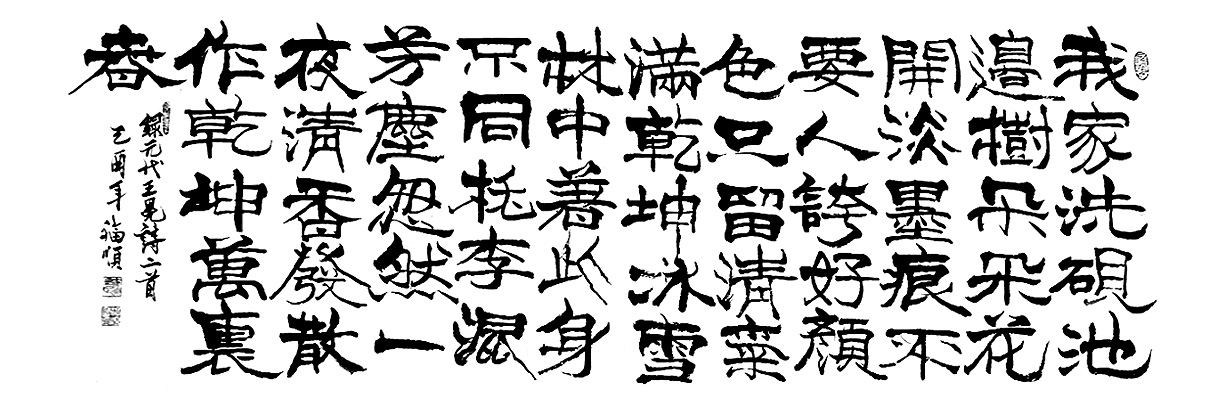 我家洗硯池
邊樹朵朵花
開淡墨痕不
要人誇好顏
色只留清氣
滿乾坤冰雪
林中著此身
不同桃李混
芳塵忽然一
夜清香發散
作乾坤萬裏
春
錄元代王冕詩二首
乙酉年 福順